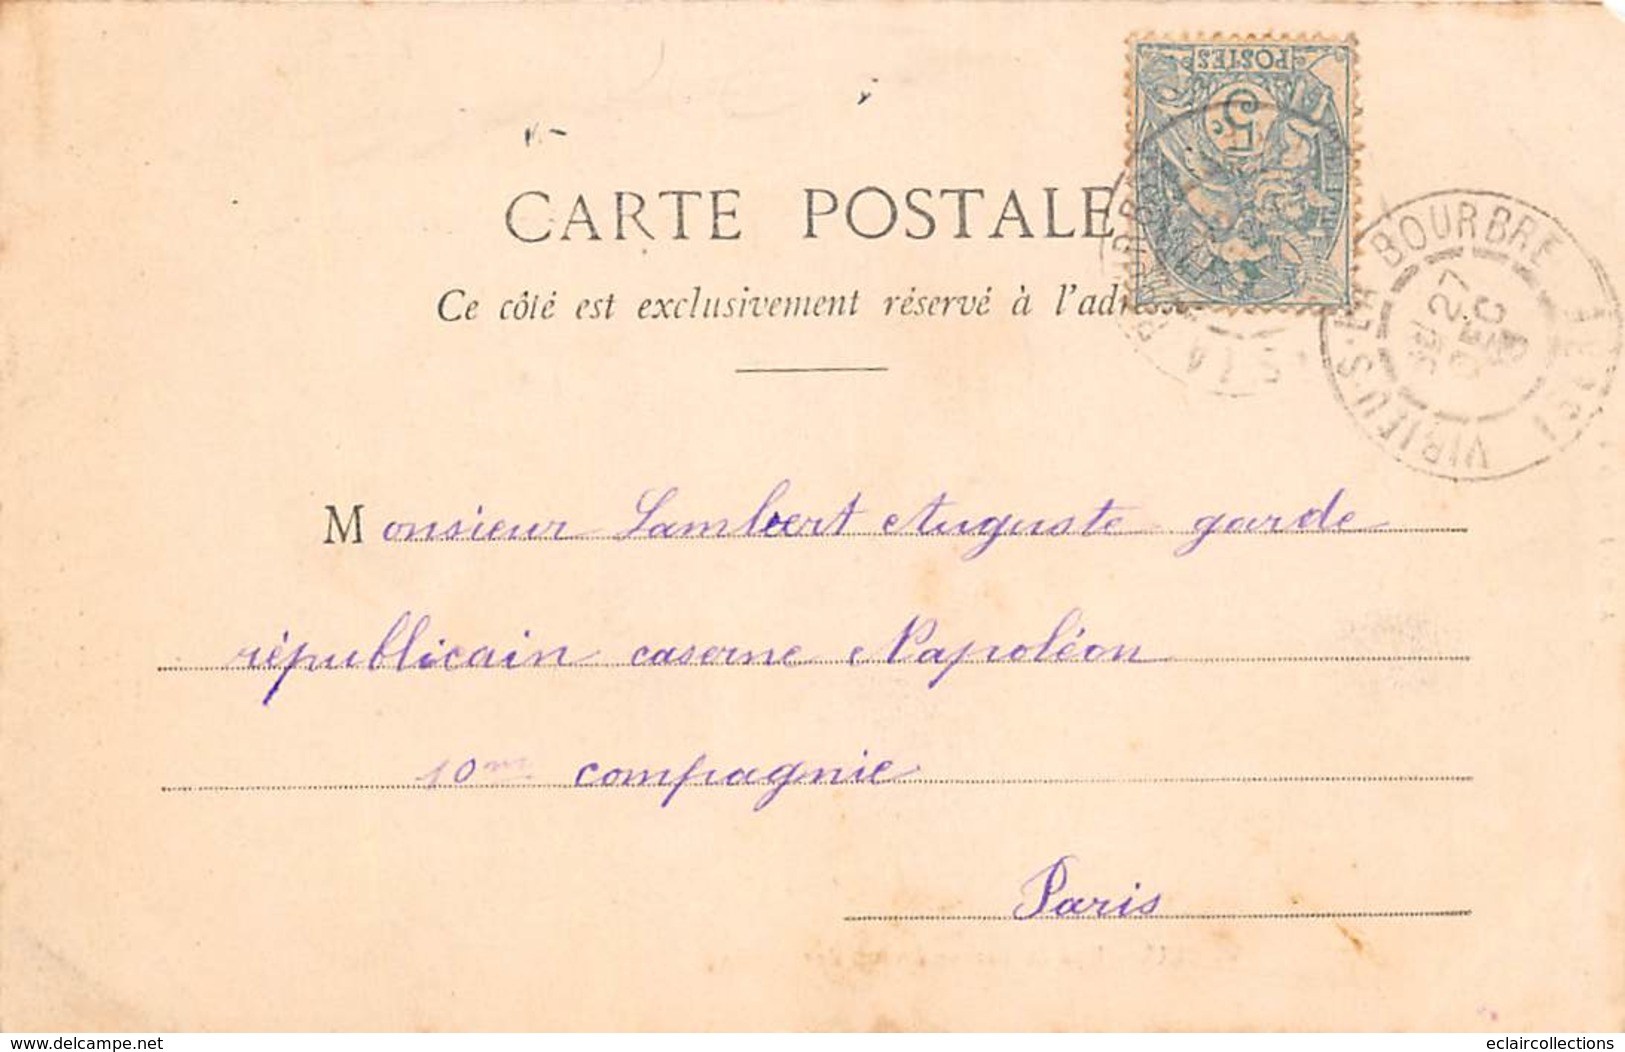 POSTES
5c
CARTE POSTALE
Ce côté est exclusivement réservé à l'adresse
VIRIEU-S-LA BOURBRE
27
DEC
Monsieur Lambert Auguste garde
républicain caserne Napoléon
10me compagnie
Paris
www.delcampe.net
eclaircollections